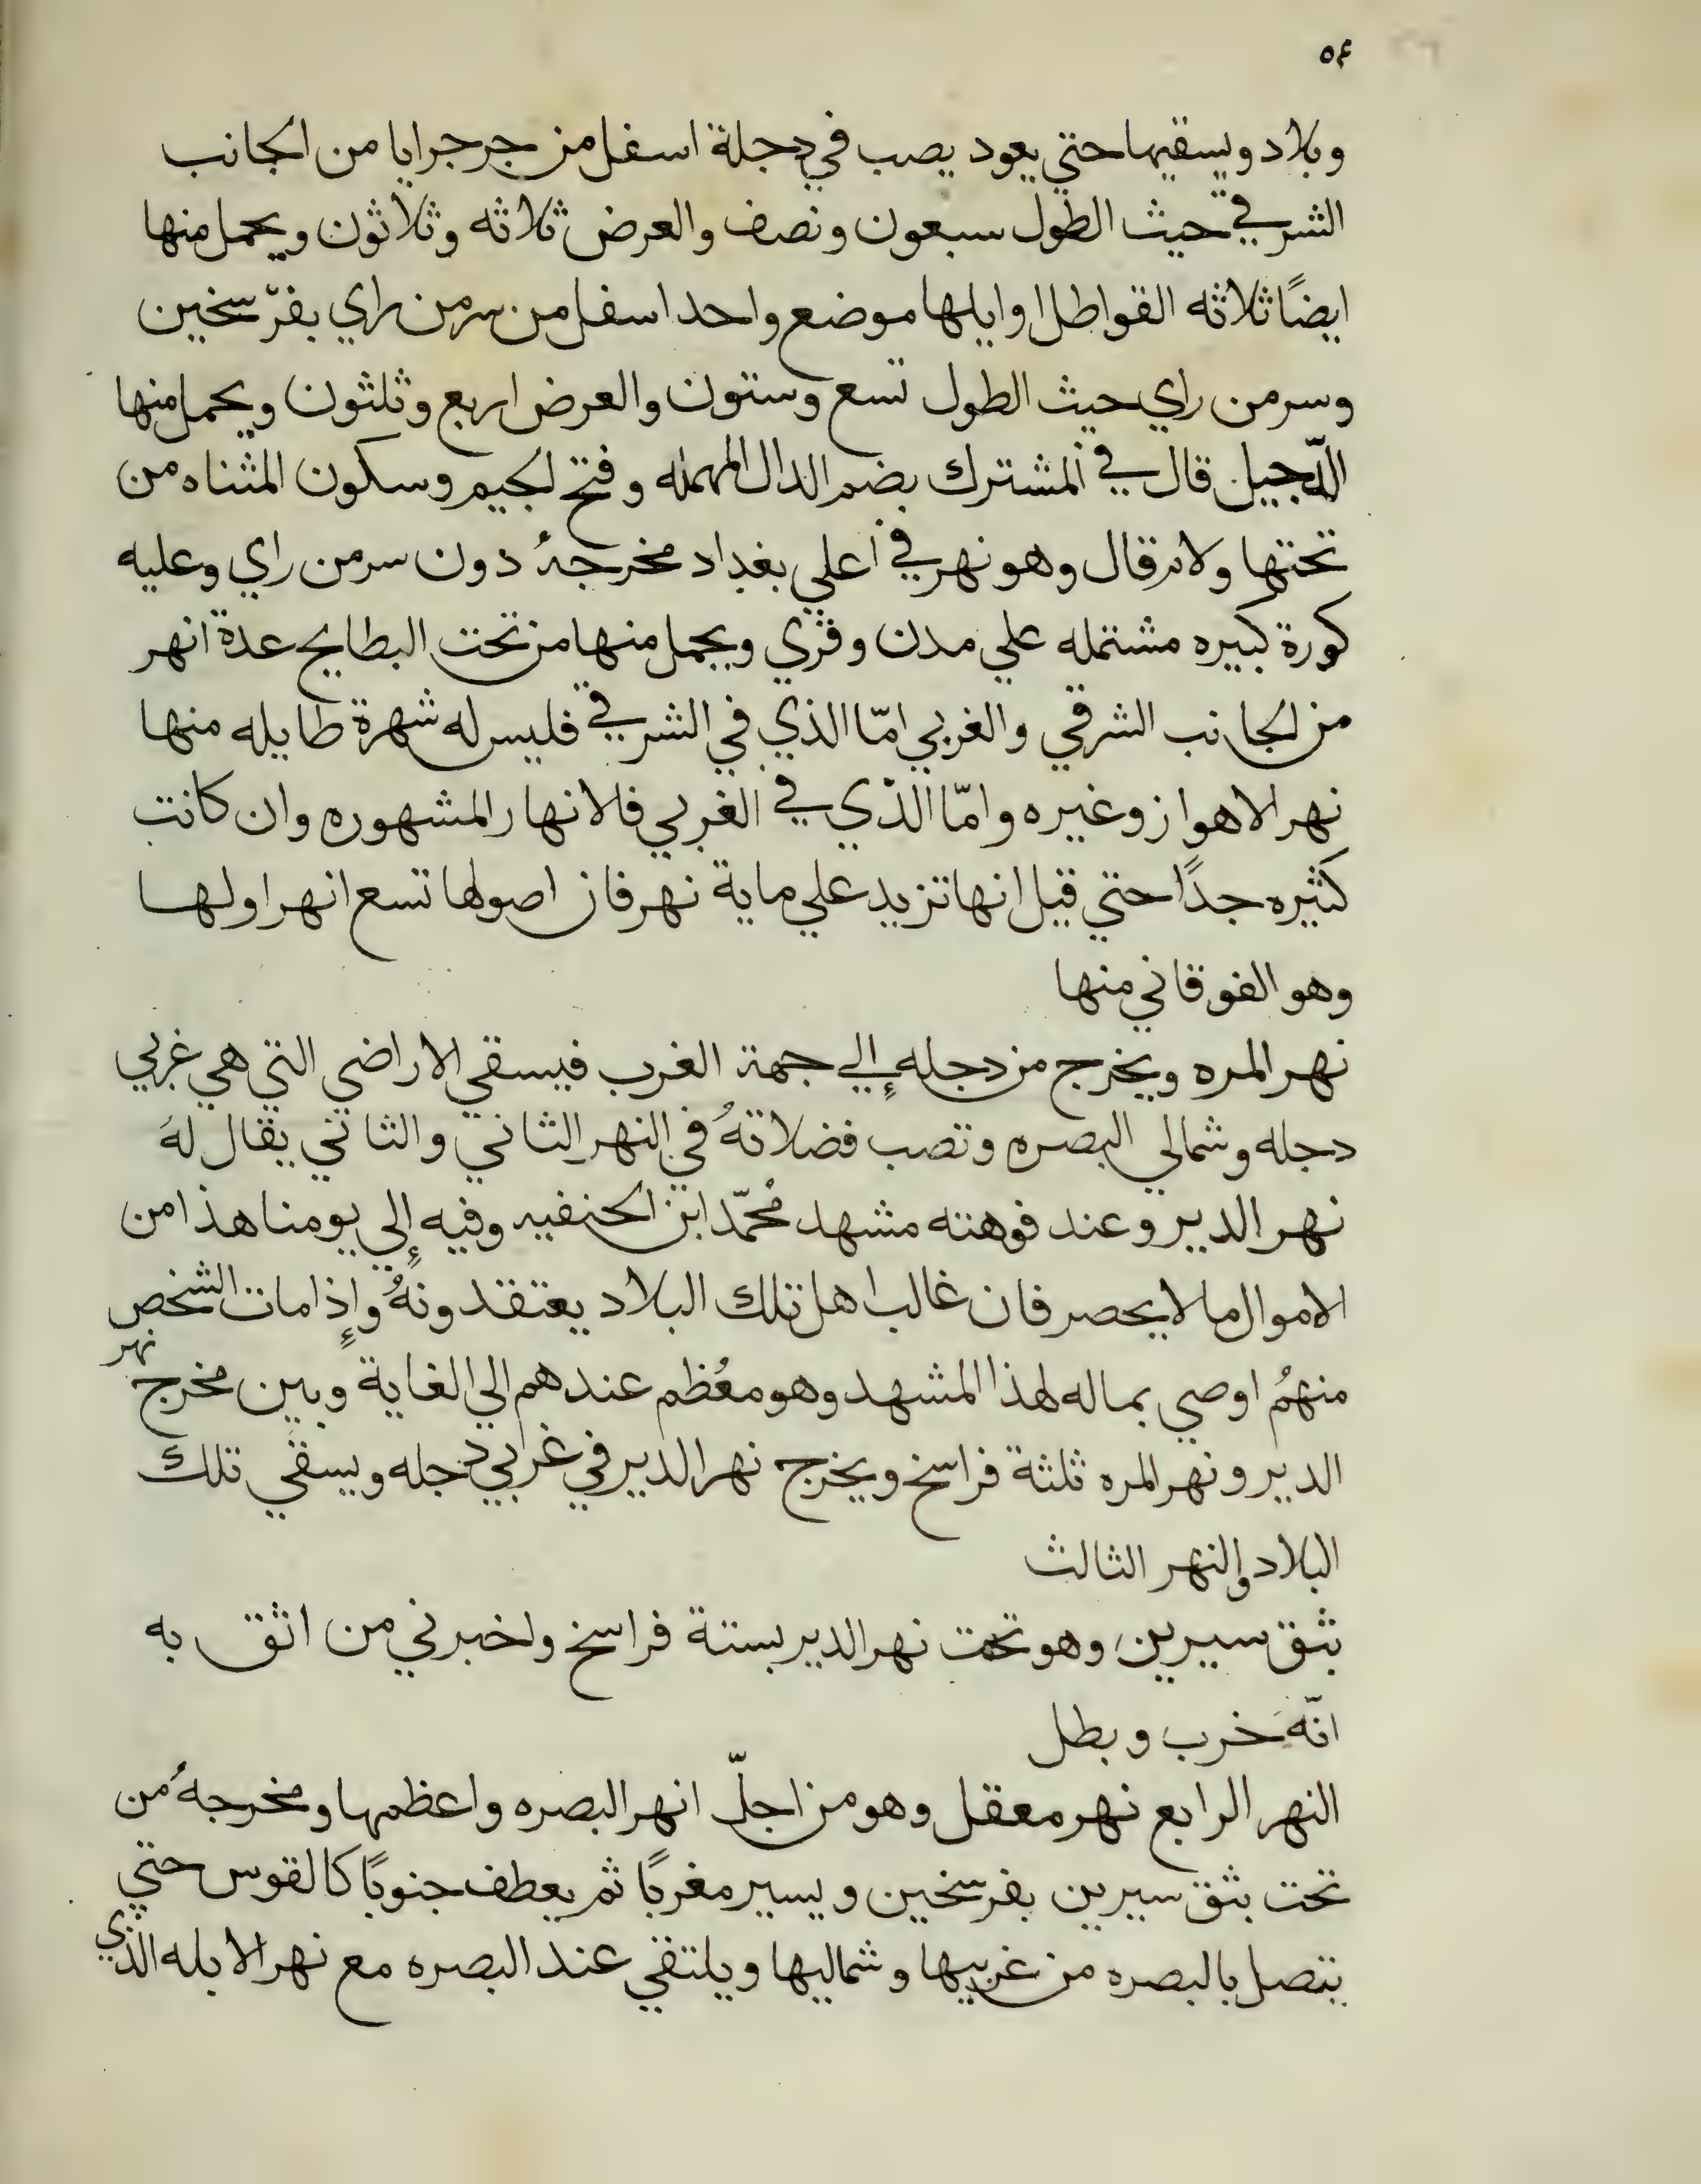 ٥٤
وبلاد ويسقيها حتي يعود يصب في دجلة اسفل من جرجرايا من الجانب
الشرقي حيث الطول سبعون ونصف والعرض ثلاثه وثلاثون ويحمل منها
ايضًا ثلاثه القواطل اوايلها موضع واحد اسفل من سرمن راي بفرسخين
وسرمن راي حيث الطول تسع وستون والعرض اربع وثلثون ويحمل منها
الدّجيل قال في المشترك بضم الدال المهمله وفتح الجيم وسكون المثناه من
تحتها ولام قال وهو نهر في أعلي بغداد مخرجهُ دون سرمن راي وعليه
كورة كبيره مشتمله علي مدن وقري ويحمل منها من تحت البطايح عدة انهر
من الجانب الشرقي والغربي امّا الذي في الشرقي فليس له شهرة طايله منها
نهر الاهواز وغيره وامّا الذي في الغربي فلانهار المشهوره وان كانت
كثيره جدًا حتي قيل انها تزيد علي ماية نهر فان اصولها تسع انهر اولها
وهو الفوقاني منها
نهر المره ويخرج من دجله إلي جهة الغرب فيسقي الاراضي التي هي غربي
دجله وشمالي البصره وتصب فضلاتهُ في النهر الثاني والثاني يقال لهَ
نهر الدير وعند فوهته مشهد مُحمّد ابن الحنفيه وفيه إلي يومنا هذا من
الاموال ما لا يحصر فان غالب اهل تلك البلاد يعتقدونهُ وإذا مات الشخص
منهمُ اوصي بماله لهذا المشهد وهو معُظم عندهم الي الغاية وبين مخرج نهر
الدير ونهر المره ثلثة فراسخ ويخرج نهر الدير في غربي دجله ويسقي تلك
البلاد والنهر الثالث
بثق سيرين وهو تحت نهر الدير بستة فراسخ واخبرني من اثق به
انّهَ خرب وبطل
النهر الرابع نهر معقل وهو من اجلّ انهر البصره واعظمها ومخرجهُ من
تحت بثق سيرين بفرسخين ويسير مغربًا ثم يعطف جنوبًا كالقوس حتي
يتصل بالبصره من غربيها وشماليها ويلتقي عند البصره مع نهر الابله الذي